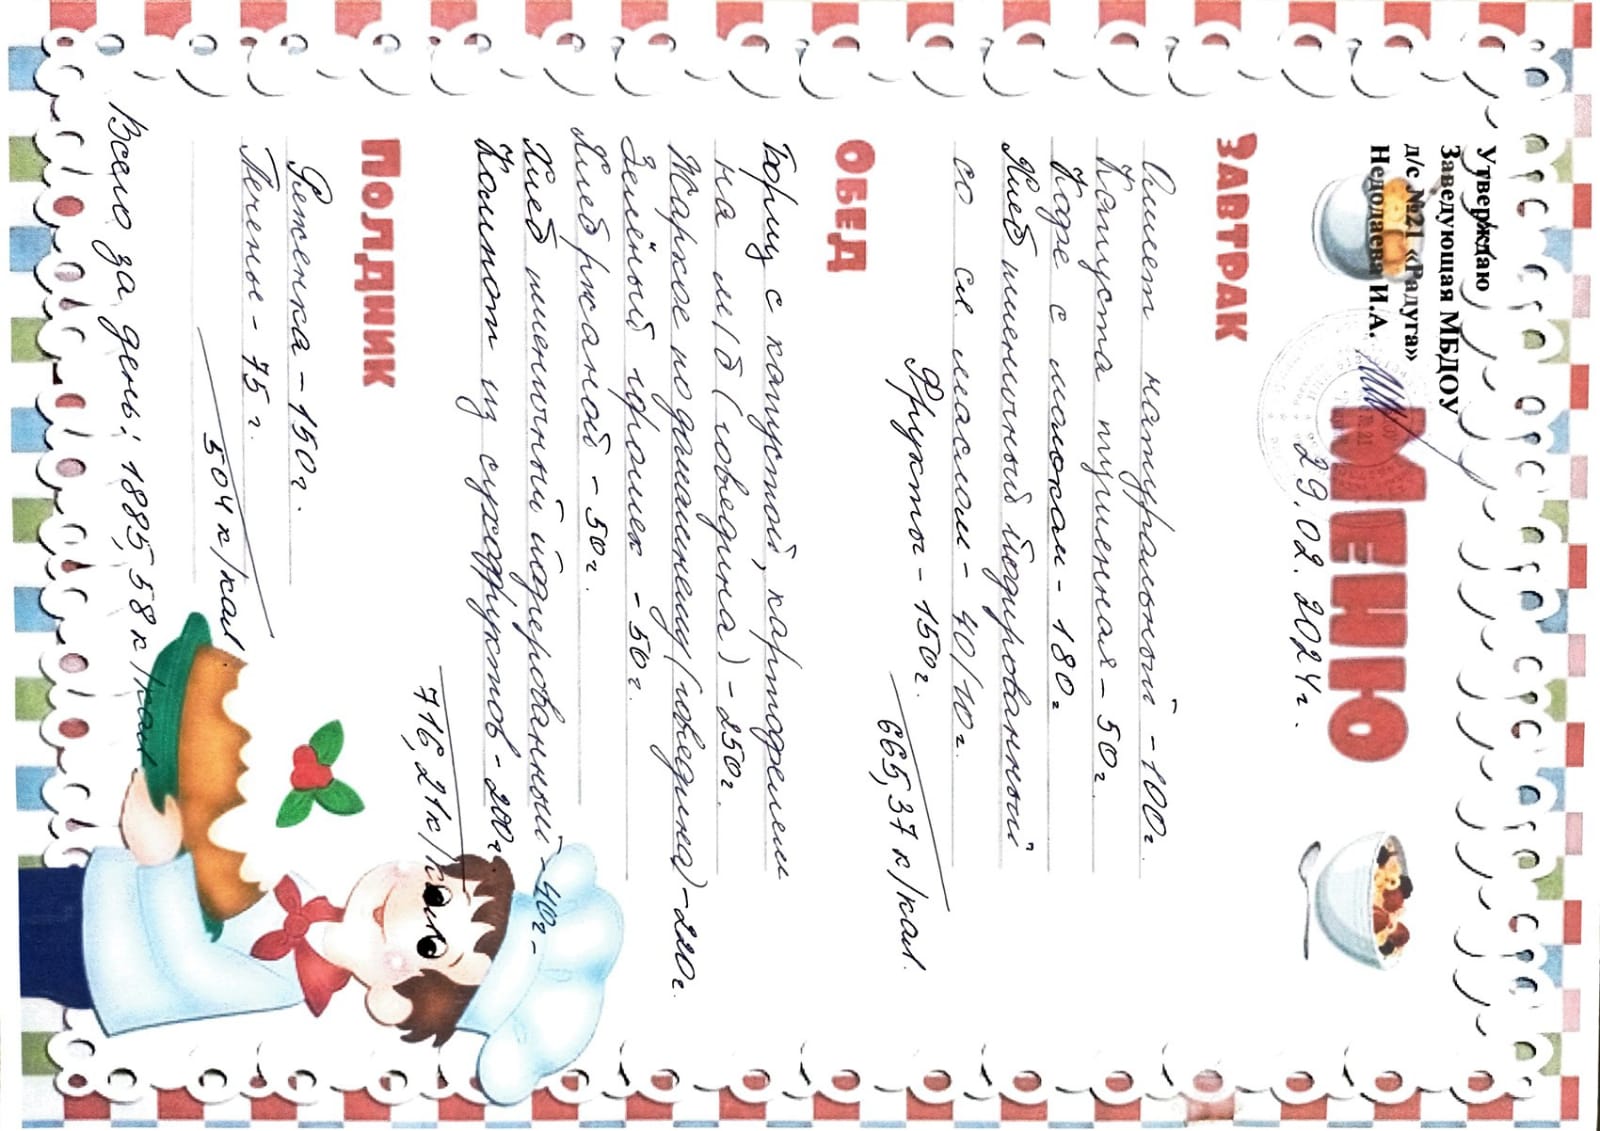 Утверждаю
Заведующая МБДОУ
д/с №21 «Радуга»
Недодаева И.А.
Меню
29.02.2024г.
Завтрак
Омлет натуральный - 100г.
Капуста тушенная - 50г.
Кофе с молоком - 180г.
Хлеб пшеничный йодированный
со сл. маслом - 40/10г.
Фрукты - 150г.
665,37 к/кал.
Обед
Борщ с капустой, картофелем
на м/б (говедина) - 250г.
Жаркое по домашнему (говедина) - 220г.
Зелёный горошек - 50г.
Хлеб ржаной - 50г.
Хлеб пшеничный йодированный - 40г-
Компот из сухофруктов - 200г
716,21к/кал
Полдник
Ряженка - 150г.
Печенье - 75 г.
504 к/кал
Всего за день: 1885,58 к/кал